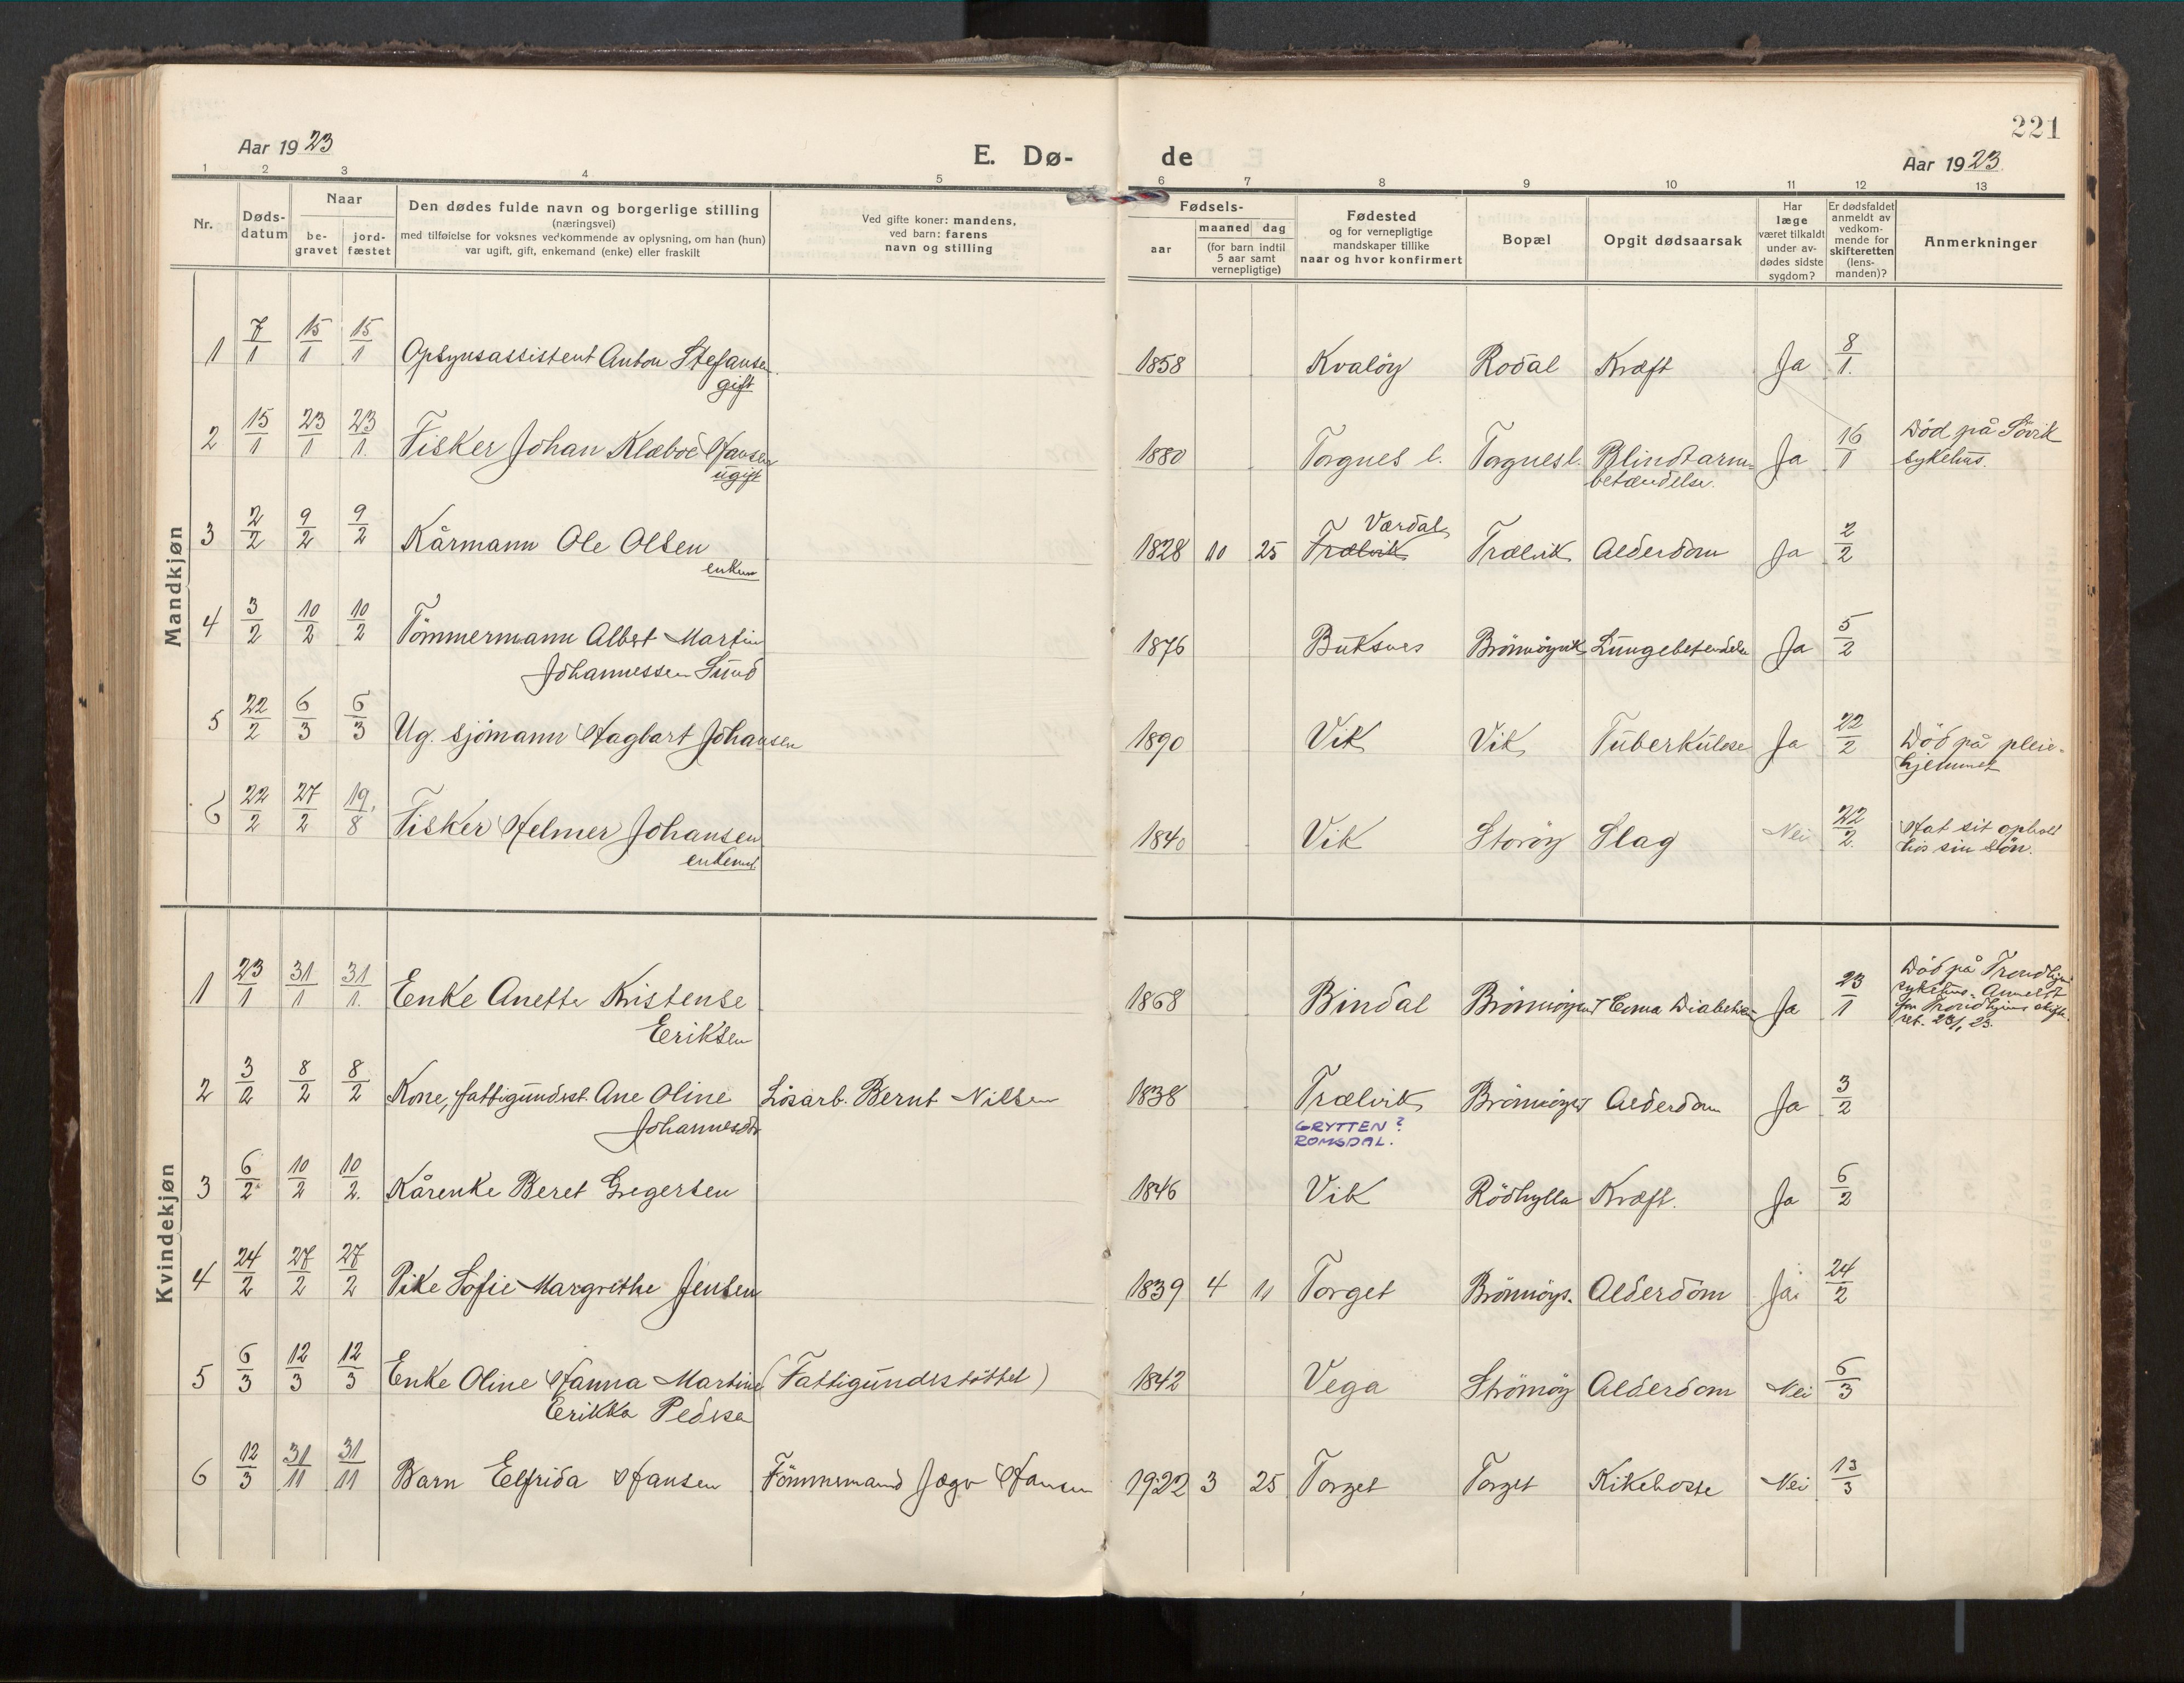 221
Aar 1923
E. Dø-
de
Aar 1923
1 2 3 4 5 6 7 8 9 10 11 12 13
Nr.
Døds-
datum
Naar
be-
gravet
jord-
fæstet
Den dødes fulde navn og borgerlige stilling
(næringsvei)
med tilføielse for voksnes vedkommende av oplysning, om han (hun)
var ugift, gift, enkemand (enke) eller fraskilt
Ved gifte koner: mandens,
ved barn: farens
navn og stilling
Fødsels-
aar
maaned dag
(for barn indtil
5 aar samt
vernepligtige)
Fødested
og for vernepligtige
mandskaper tillike
naar og hvor konfirmert
Bopæl
Opgit dødsaarsak
Har
læge
været tilkaldt
under av-
dødes sidste
sygdom?
Er dødsfaldet
anmeldt av
vedkom-
mende for
skifteretten
(lens-
manden)?
Anmerkninger
Mandkjøn
1 7/1 15/1 15/1 Opsynsassistent Anton Stefansen 1858 Kvaløy Rodal Kræft Ja 8/1.
gift
2 15/1 23/1 23/1. Fisker Johan Klæboe Hansen 1880 Torgnes l. Torgnes l. Blindtarm- Ja 16/1 Död på Sövik
ugift betændelse. sykehus.
3 2/2 9/2 9/2 Kårmann Ole Olsen 1828 10 25 Trælvik Værdal Trælvik Alderdom Ja 2/2
enkem
4 3/2 10/2 10/2 Tömmermann Albert Martin 1876 Buksnes Brönnöysund Lungebetendelse Ja 5/2
Johannessen Sund
5 22/2 6/3 6/3 Ug. sjömann Hagbart Johansen 1890 Vik Vik Tuberkulose Ja 22/2 Död på pleie-
hjemmet
6 22/2 27/2 19/8 Fisker Helmer Johansen 1840 Vik Storöy Slag Nei 22/2. Hat sit ophold
enkem. hos sin sön.
Kvindekjøn
1 23/1 31/1 31/1. Enke Anette Kristense 1868 Bindal Brönnöysund Coma Diabeticum Ja 23/1 Död på Trondhjem
Eriksen sykehus. Anmeldt
for Trondhjems skifte-
ret. 23/1 23.
2 3/2 8/2 8/2 Kone, fattigundrst. Ane Oline Lösarb. Bernt Nilsen 1838 Trælvik Brönnöys Alderdom Ja 3/2
Johannesdtr GRYTTEN?
ROMSDAL.
3 6/2 10/2 10/2. Kårenke Beret Gregersen 1846 Vik Rödhylla Kræft. Ja 6/2
4 24/2 27/2 27/2 Pike Sofie Margrethe Jensen 1839 4 11 Torget Brönnöys. Alderdom Ja 24/2
5 6/3 12/3 12/3 Enke Oline Hanna Martine (Fattigundrstöttet) 1842 Vega Strömöy Alderdom Nei 6/3
Erikka Pedrsen
6 12/3 31/11 31/11 Barn Elfrida Hansen Tömmermand Hansen 1922 3 25 Torget Torget Kikehoste Nei 13/3